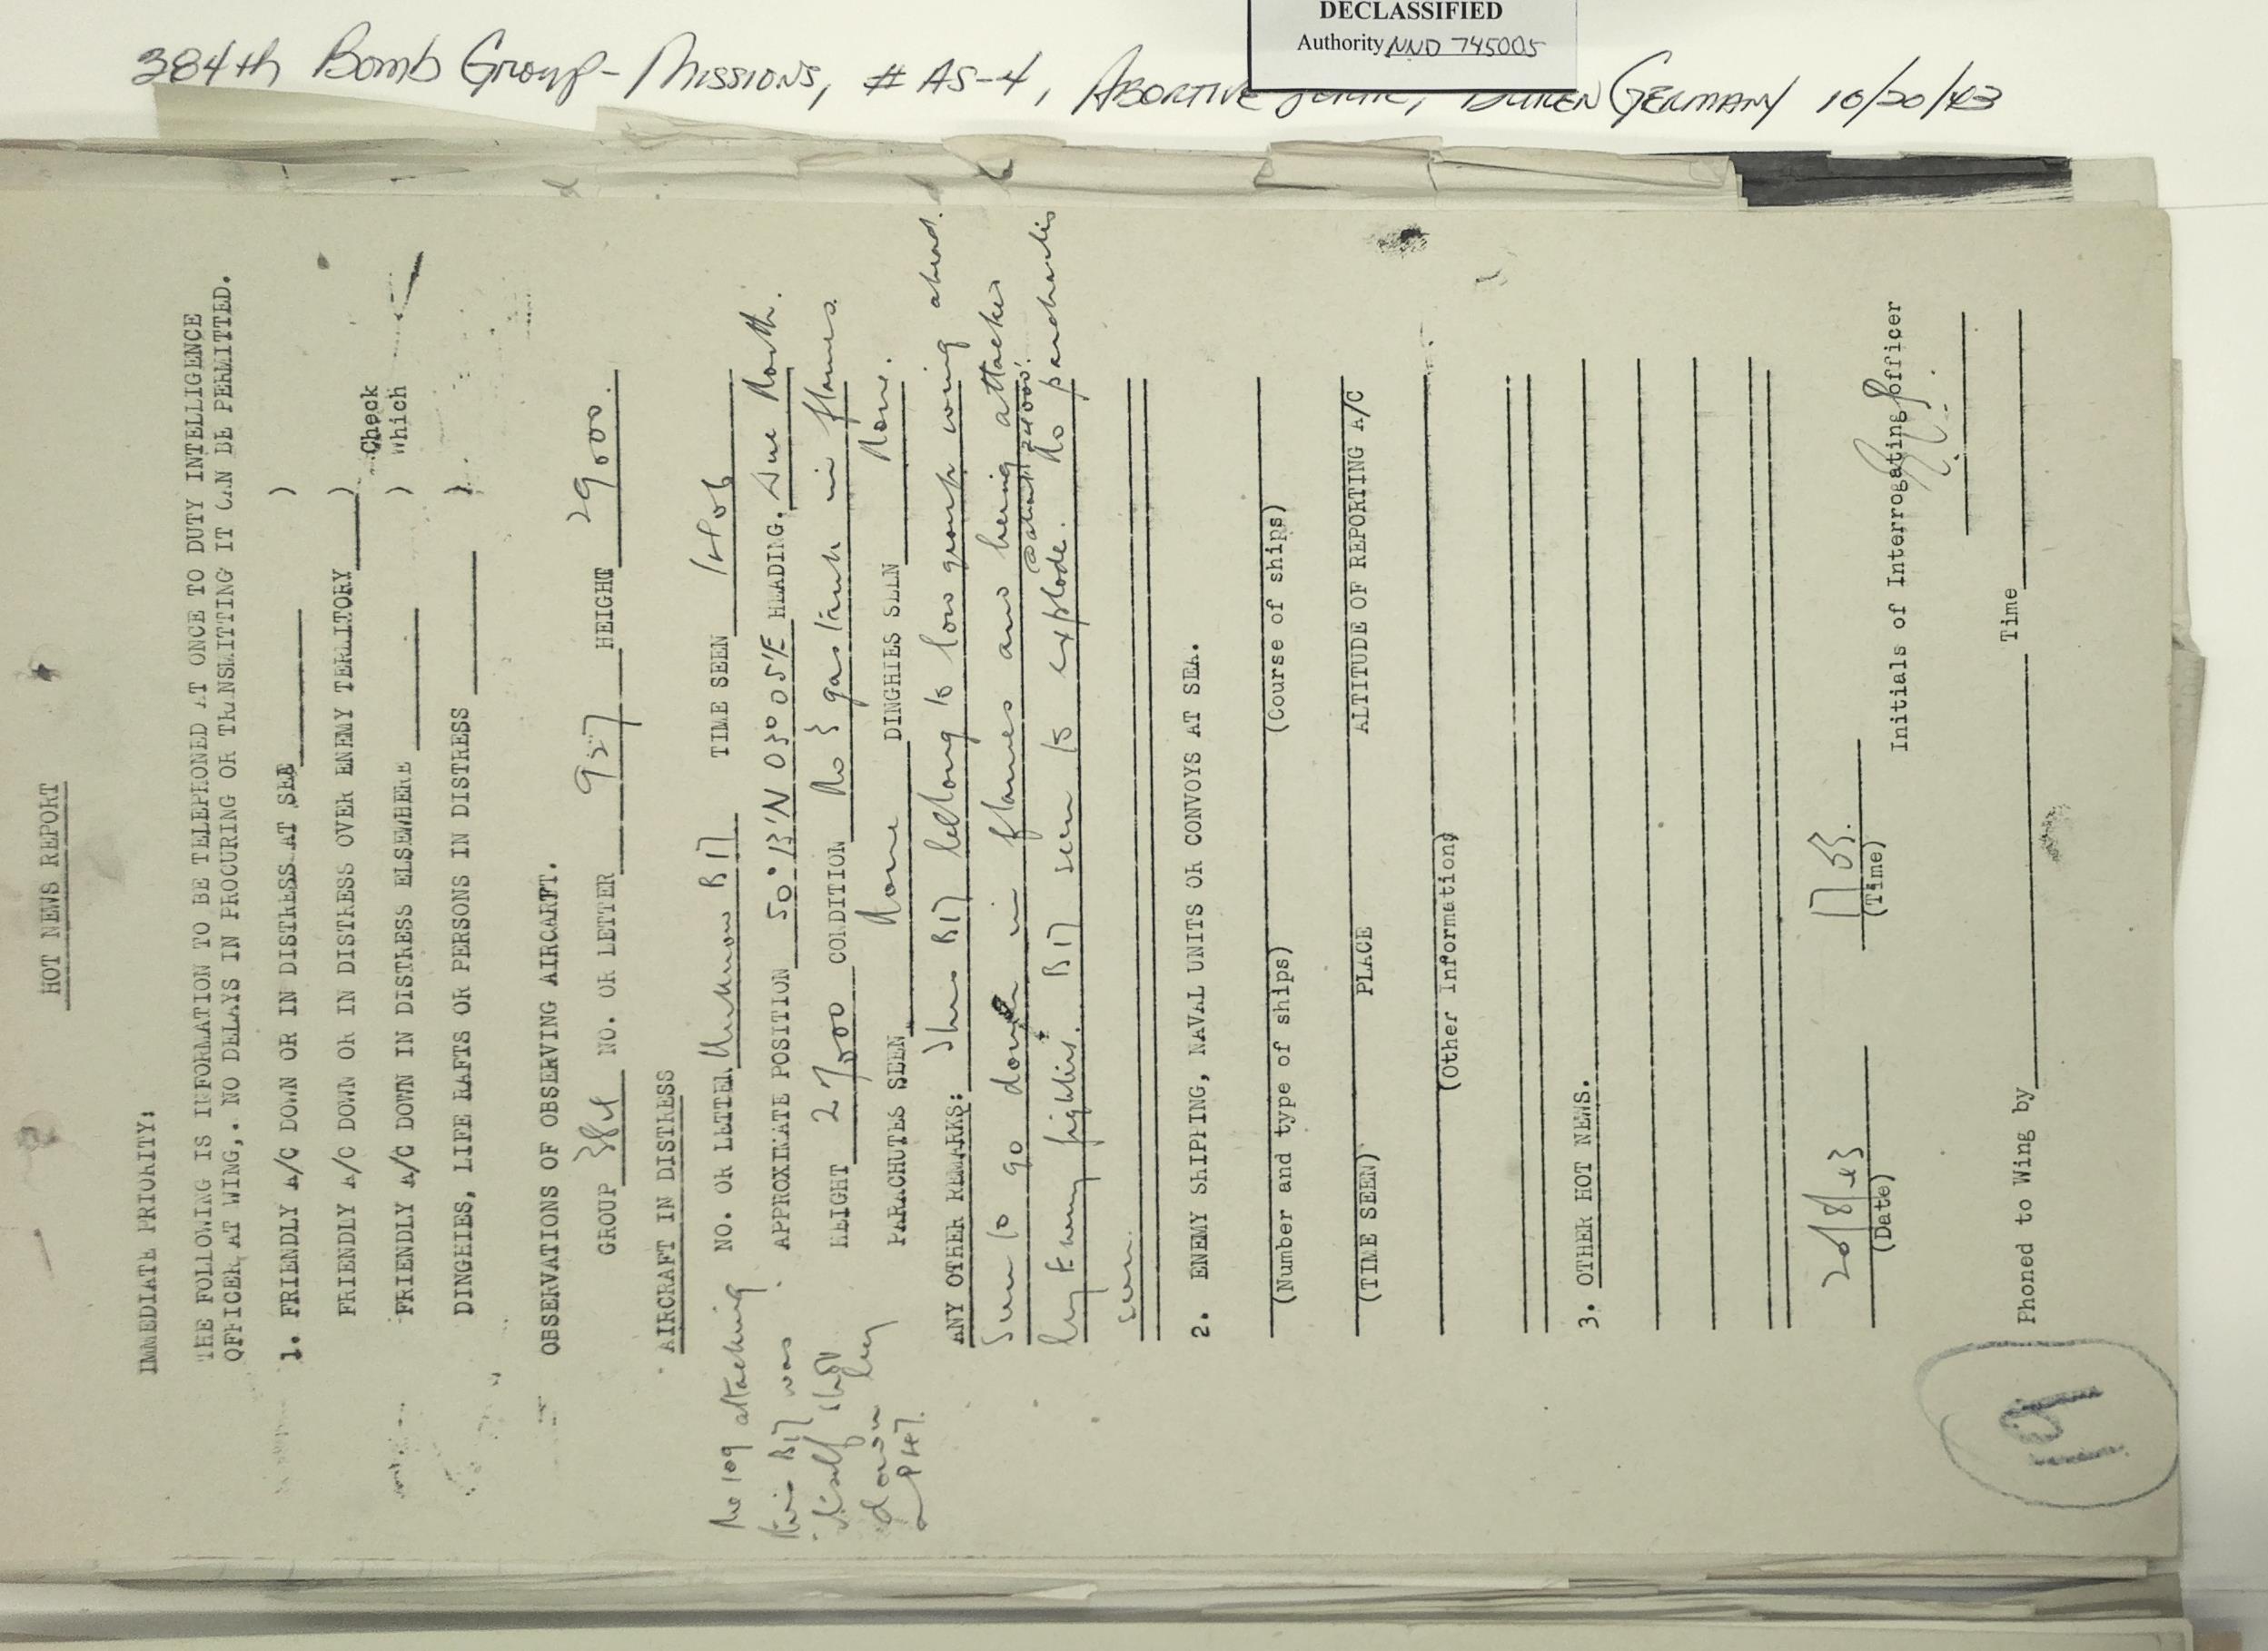 DECLASSIFIED
Authority NND 745005
384th Bomb Group - Missions, # AS-4, Abortive Sortie, Duren Germany 10/20/43
HOT NEWS REPORT
IMMEDIATE PRIORITY:
THE FOLLOWING IS INFORMATION TO BE TELEPHONED AT ONCE TO DUTY INTELLIGENCE
OFFICER AT WING,. NO DELAYS IN PROCURING OR TRANSMITTING IT CAN BE PERMITTED.
1. FRIENDLY A/C DOWN OR IN DISTRESS AT SEA )
FRIENDLY A/C DOWN OR IN DISTRESS OVER ENEMY TERRITORY )
Check
Which
FRIENDLY A/C DOWN IN DISTRESS ELSEWHERE )
DINGEIES, LIFE RAFTS OR PERSONS IN DISTRESS )
OBSERVATIONS OF OBSERVING AIRCARFT.
GROUP 384 NO. OR LETTER 927 HEIGHT 29000.
AIRCRAFT IN DISTRESS
NO. OR LETTER Unknown B17 TIME SEEN 1406
APPROXIMATE POSITION 50° 13'N 03° 05'E HEADING. Due North.
HEIGHT 27000 CONDITION No 3 gas tank in flames.
PARACHUTES SEEN None DINGHIES SEEN None.
Me 109 attacking
this B17 was
itself shot
down by
P47.
ANY OTHER REMARKS: This B17 belong to low group wing ahead.
Seen to go down in flames and being attacked
@ about 24000'.
by Enemy fighters. B17 seen to explode. No parachutes
seen.
2. ENEMY SHIPPING, NAVAL UNITS OR CONVOYS AT SEA.
(Number and type of ships) (Course of ships)
(TIME SEEN) PLACE ALTITUDE OF REPORTING A/C
(Other Information)
3. OTHER HOT NEWS.
1703.
(Date) (Time) Initials of Interrogating Officer
Phoned to Wing by Time
19